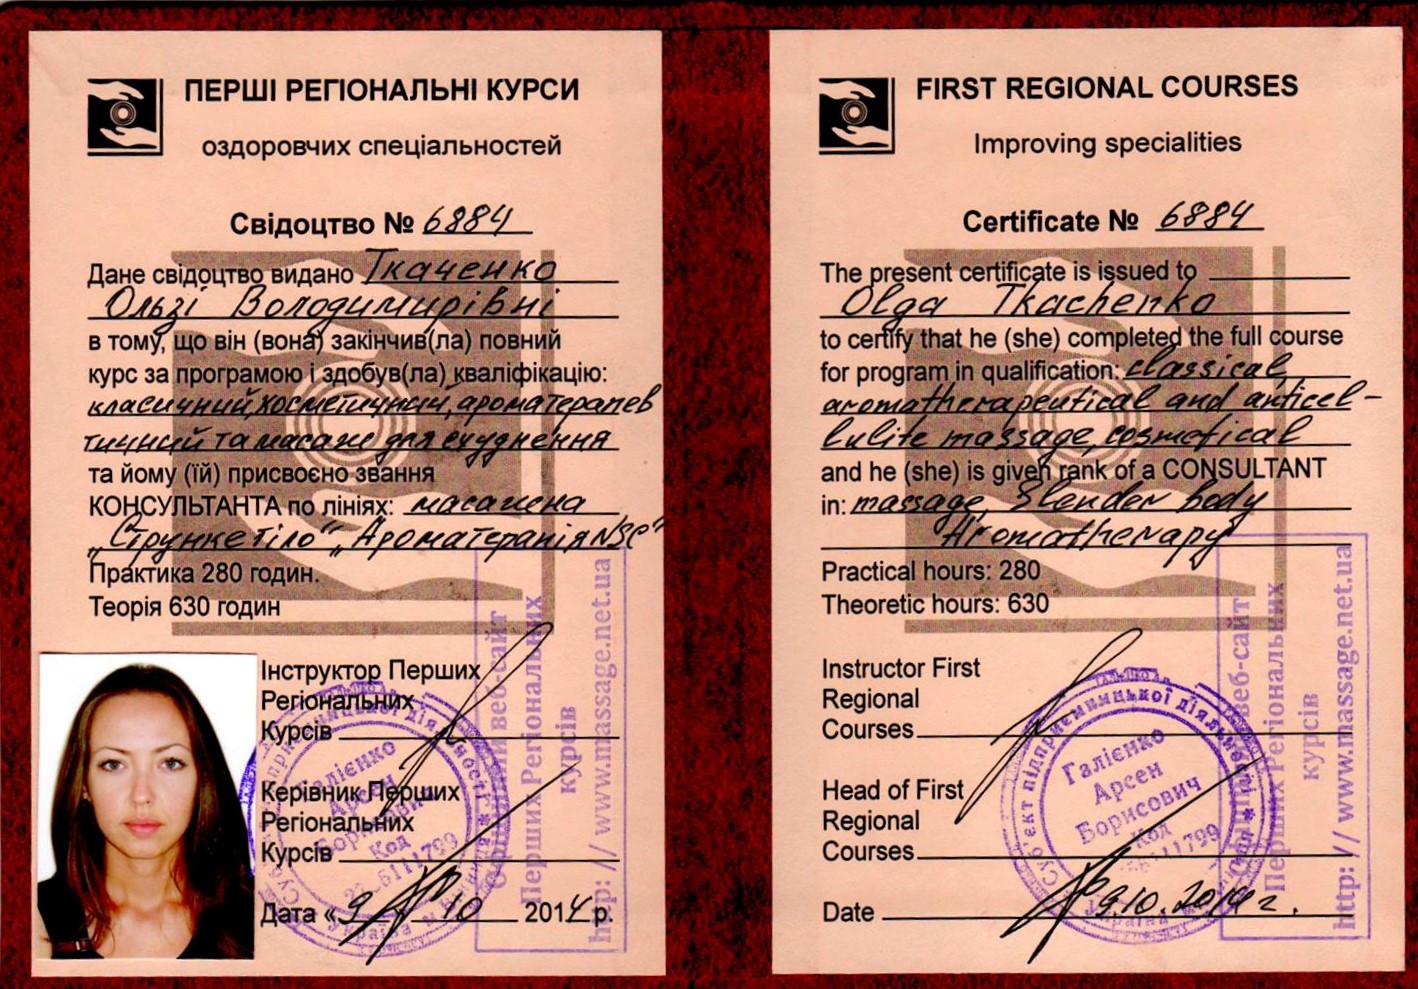 ПЕРШІ РЕГІОНАЛЬНІ КУРСИ
оздоровчих спеціальностей
Свідоцтво № 6884
Дане свідоцтво видано Ткаченко
Ользі Володимирівні
в тому, що він (вона) закінчив(ла) повний
курс за програмою і здобув(ла) кваліфікацію:
класичний, косметичний, ароматерапев
тичний та масаж для схуднення
та йому (їй) присвоєно звання
КОНСУЛЬТАНТА по лініях: масажена
„Струнке тіло" „Ароматерапія NSC"
Практика 280 годин.
Теорія 630 годин
Інструктор Перших
Регіональних
Курсів
Керівник Перших
Регіональних
Курсів
Дата «9 10 2014 р.
веб-сайт
Перших Регіональних
курсів
http: // www.massage.net.ua
FIRST REGIONAL COURSES
Improving specialities
Certificate № 6884
The present certificate is issued to
Olga Tkachenko
to certify that he (she) completed the full course
for program in qualification: classical,
aromatherapeutical and anticel-
lulite massage, cosmetical
and he (she) is given rank of a CONSULTANT
in: massage, Slender body
Aromatherapy
Practical hours: 280
Theoretic hours: 630
Instructor First
Regional
Courses
Head of First
Regional
Courses
Date 9.10.2014 г.
Суб'єкт підприємницької діяльності
Галієнко
Арсен
Борисович
Код
Україна
веб-сайт
Перших Регіональних
курсів
http: // www.massage.net.ua